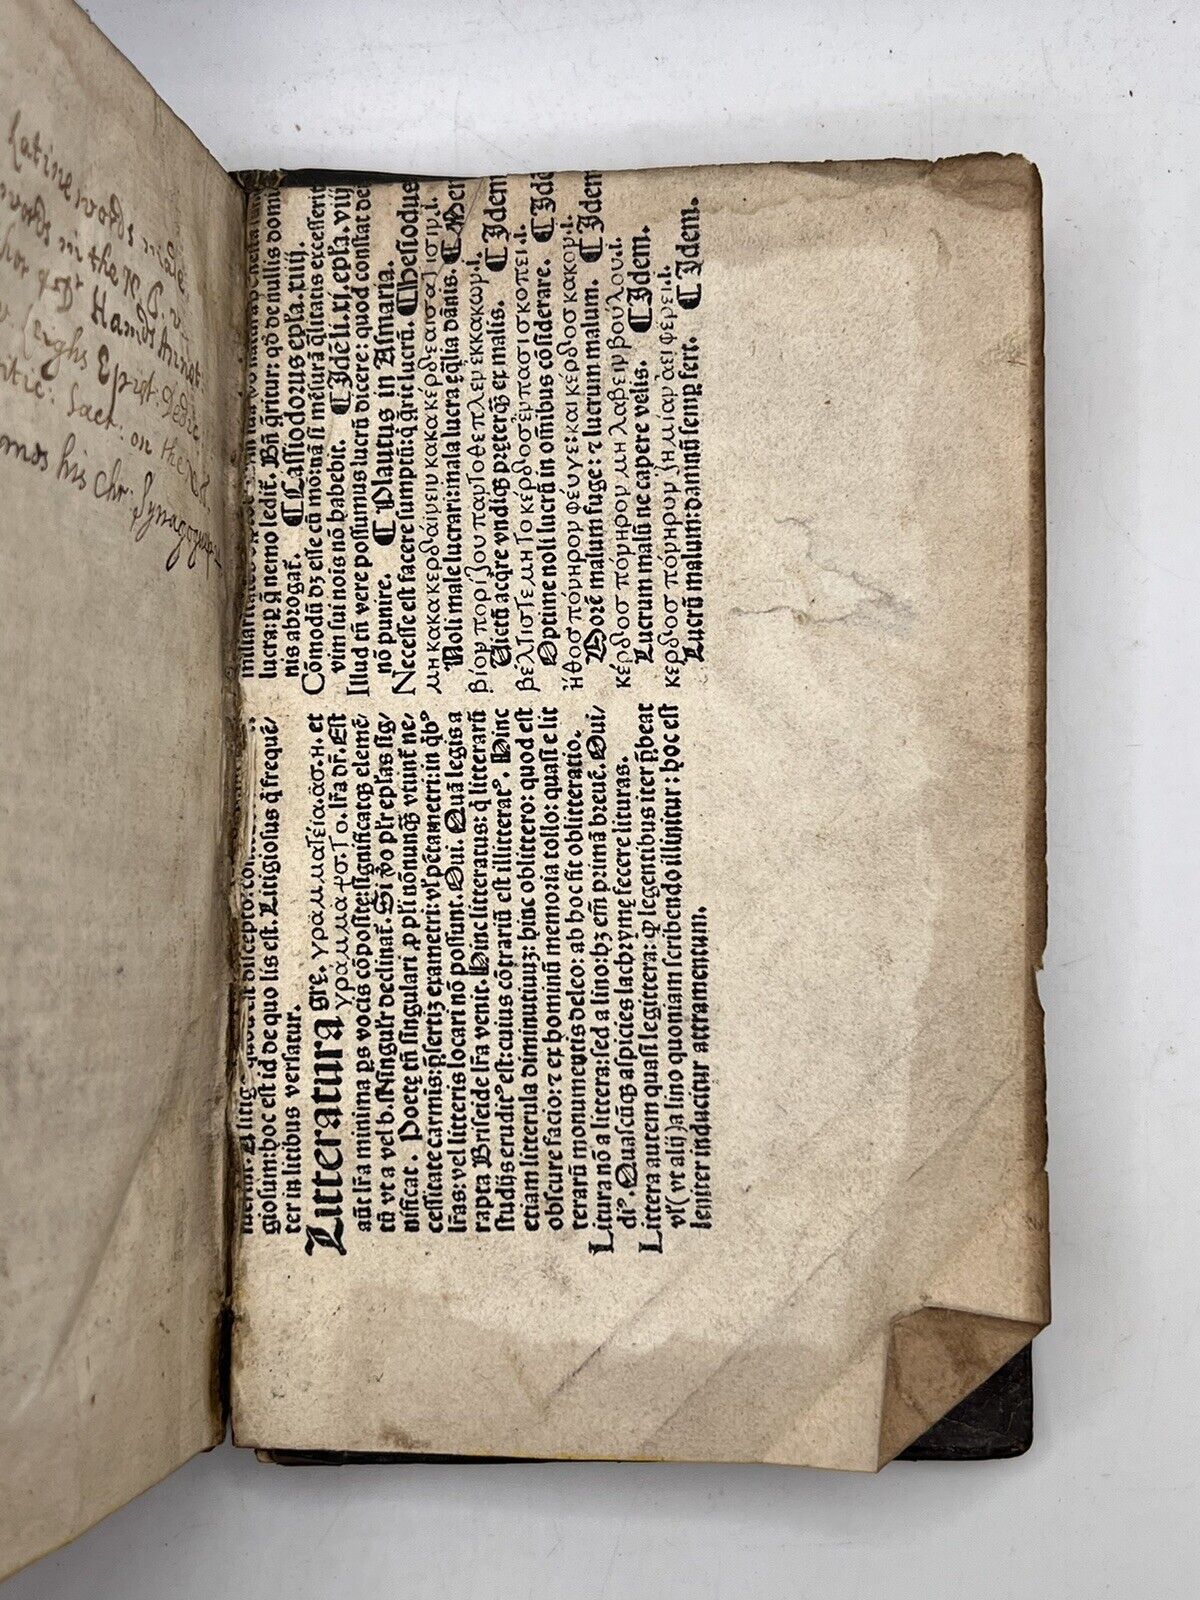 Latine words
words in the N. T.
Hamōs Annot:
Leighs Epist. Dedic:
Critic: Sacr: on the N.
his Chr: Synagogue
giosum: hoc est id de quo lis est. Litigiosus q̄ frequē/
ter in litibus versatur.
Litteratura gre. γραμματεία.ασ.η. et
γράμματοσ.το. lr̄a dr̄. Est
aūt lr̄a minima ꝑs vocis cōposite: significatqꝫ elemē/
tū vt a vel b. Ningul'r declinat̄. Si ꝟo pl'r ep̄las sig/
nificat. Poetę tn̄ singulari ꝓ pl'i nōnunqꝫ vtunt̄ ne/
cessitate carmis: p̄sertiꝫ exametri: vl' pētametri: in qb᾽
lr̄as: vel litteris locari nō possunt. Oui. Quā legis a
rapta Briseide lr̄a venit. Hinc litteratus: q̄ litterarū
studijs erudit᾽ est: cuius cōtrariū est illitterat᾽. Hinc
etiam litterula diminutiuꝫ: hinc oblittero: quod est
obscure facio: ⁊ ex hominū memoria tollo: quasi e lit
terarū monumentis deleo: ab hoc fit oblitteratio.
Litura nō a litera: sed a lino: hꝫ em̄ primā breuē. Oui/
di᾽. Quascūqꝫ aspicies lachrymę fecere lituras.
Littera autem quasi legittera: ꝙ legentibus iter p̄beat
vl' (vt alij) a lino quoniam scribendo illinitur: hoc est
leniter inducitur attramentum.
lucra: ꝑ q̄ nemo ledit̄. Bn̄ q̄ritur: qd̄ de nullis domi
nis abrogat̄. ¶ Cassiodorus ep̄la. xiiij.
Cōmodū dꝫ esse cū mō: nā si mēsurā q̄litatis excesserit
vim sui nois nō habebit. ¶ Idē li. xj. ep̄la. viij
Illud tn̄ vere possumus lucrū dicere: quod constat de
nō punire. ¶ Plautus in Asinaria.
Necesse est facere sumptū: q̄ q̄rit lucrū. ¶ Hesiodus
μη κακα κερδαίνειν κακα κέρδεα ισα
Noli male lucrari: mala lucra ęq̄lia dānis. ¶ Men
βίον πορίζου πάντοθεν πλεν εκ κακων.i.
Victū acq̄re vndiqꝫ pręterqꝫ ex malis. ¶ Idem
βέλτιστε μη το κέρδοσ εν πασι σκοπει.i.
Optime noli lucrū in oībus cōsiderare. ¶ Idē
ήθοσ πόνηρον φέυγε: και κέρδοσ κακον.i.
Morē malum fuge: ⁊ lucrum malum. ¶ Idem
κέρδοσ πόνηρον μη λαβειν βούλου.i.
Lucrum malū ne capere velis. ¶ Idem.
κέρδοσ πόνηρον ζημιαν αει φέρει.i.
Lucrū malum: damnū semꝑ fert. ¶ Idem.